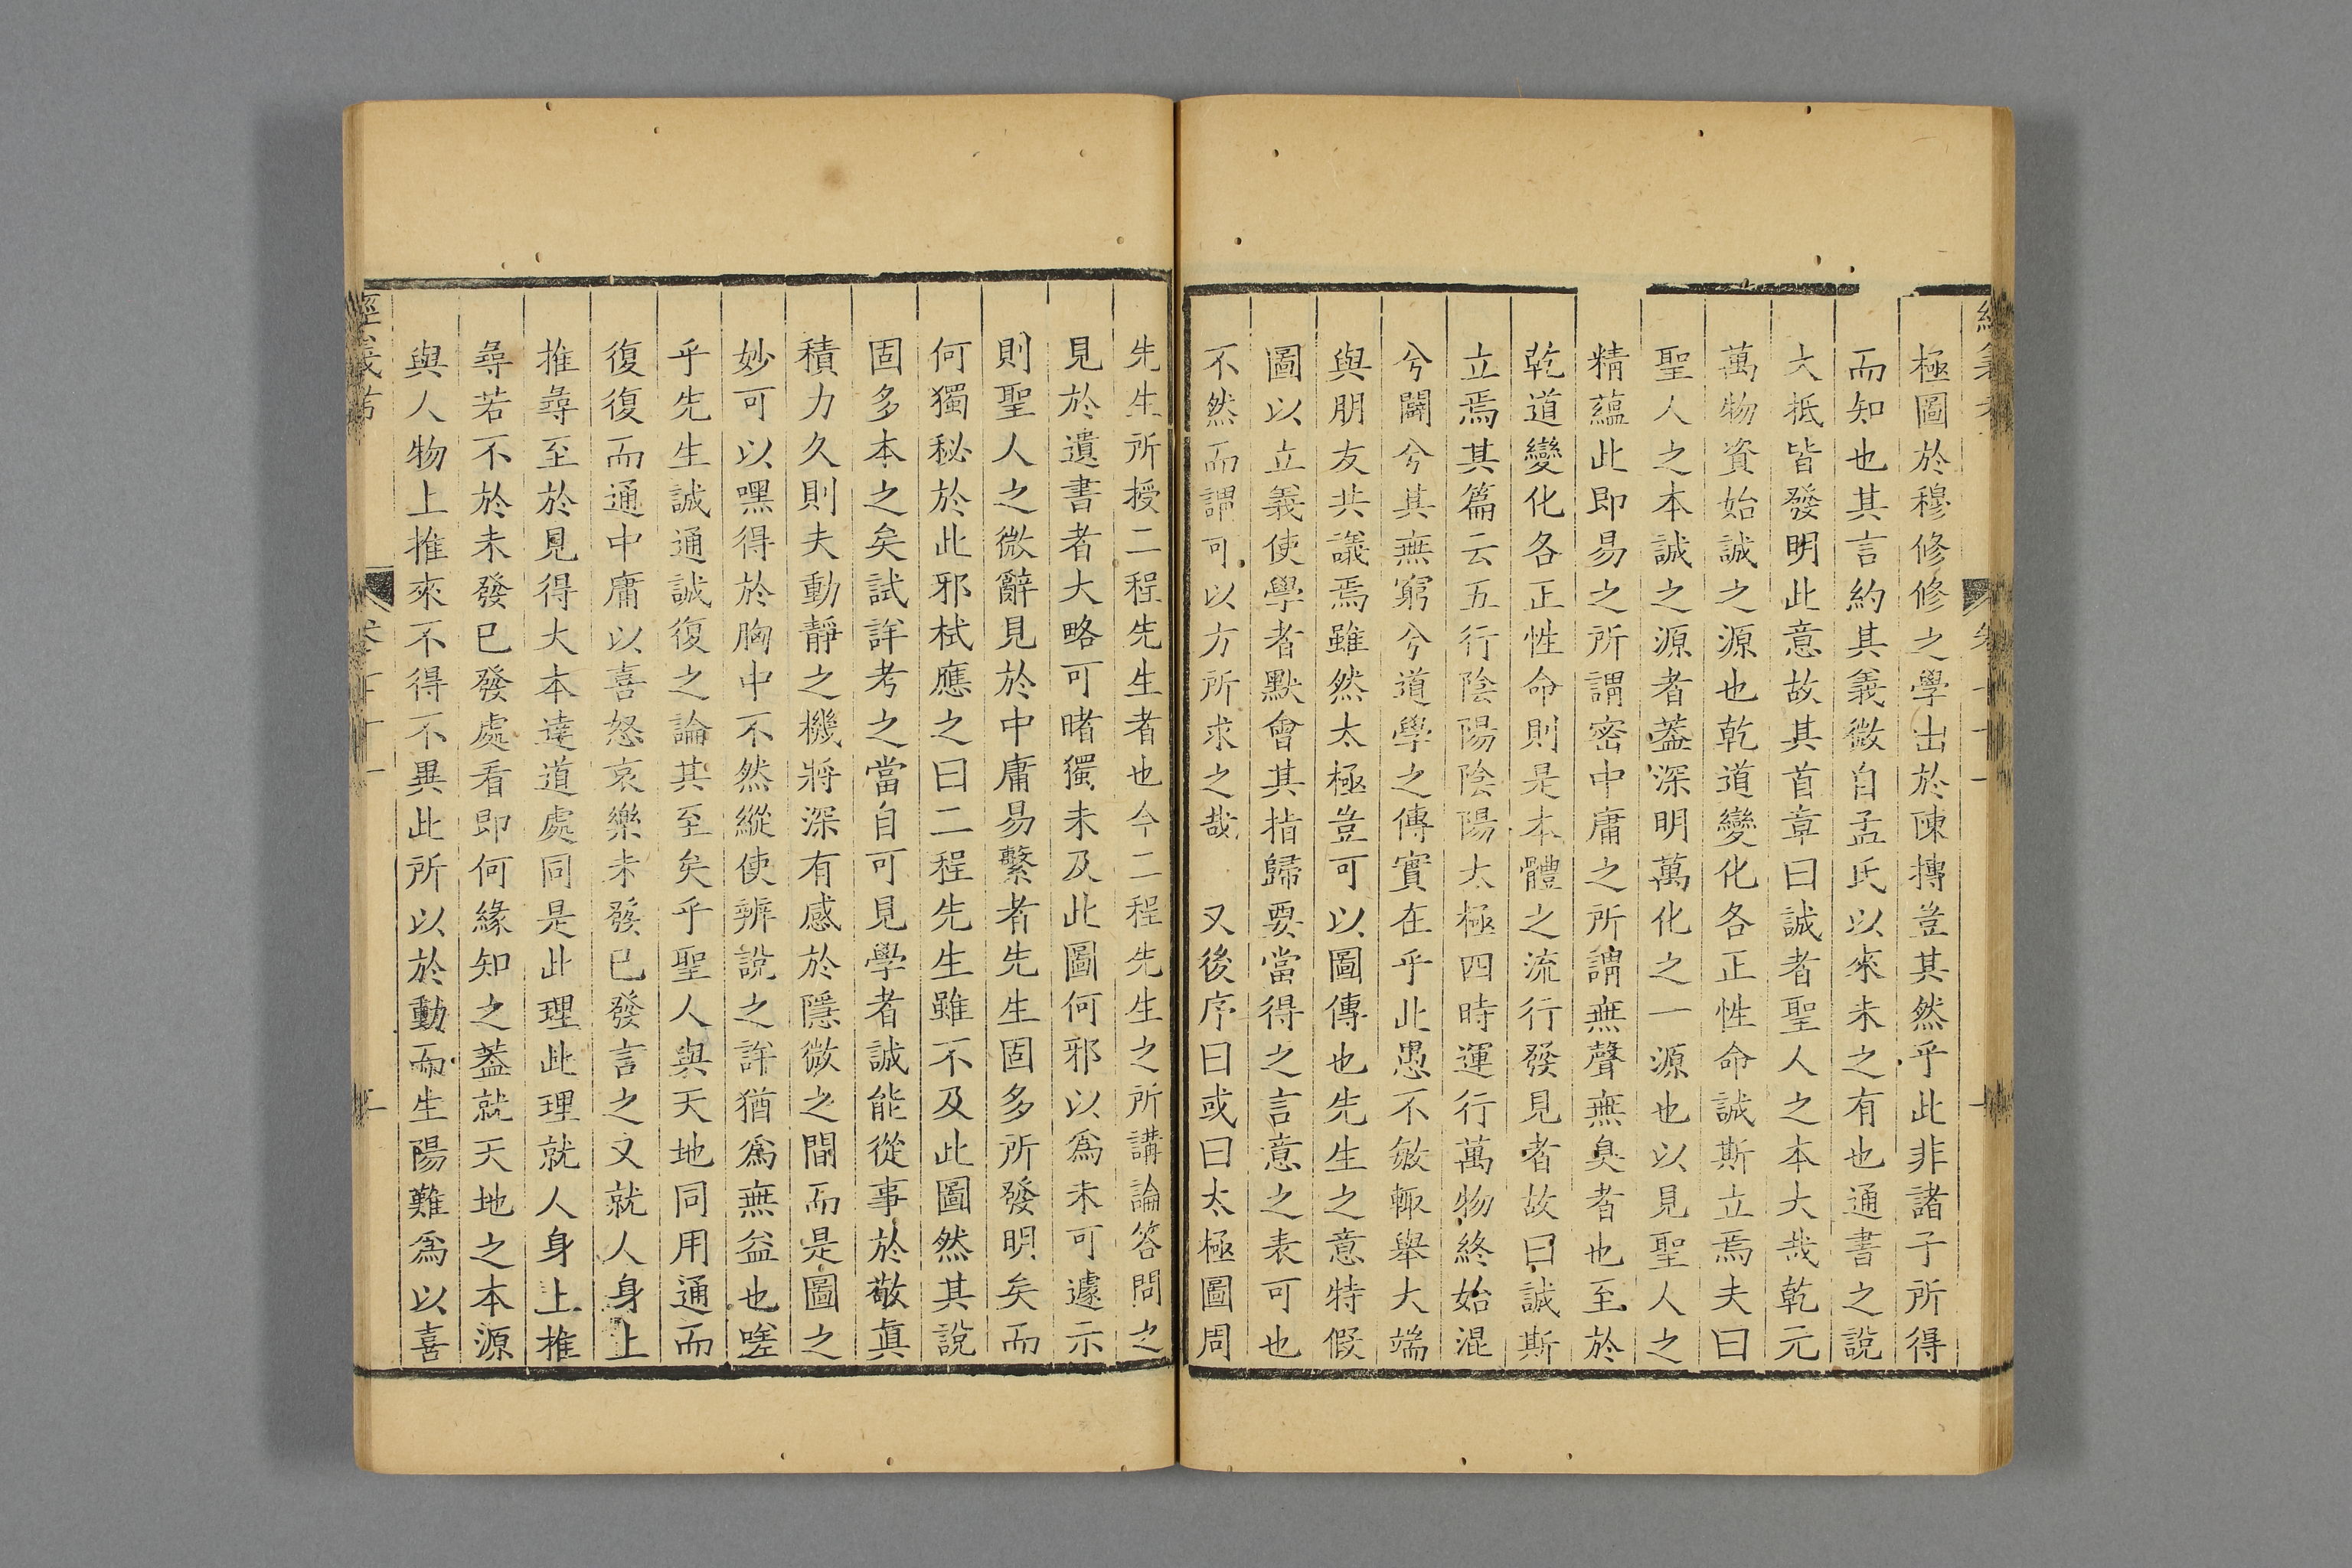 極圖於穆修修之學出於陳摶豈其然乎此非諸子所得
而知也其言約其義微自孟氏以來未之有也通書之說
大抵皆發明此意故其首章曰誠者聖人之本大哉乾元
萬物資始誠之源也乾道變化各正性命誠斯立焉夫曰
聖人之本誠之源者葢深明萬化之一源也以見聖人之
精蘊此即易之所謂密中庸之所謂無聲無臭者也至於
乾道變化各正性命則是本體之流行發見者故曰誠斯
立焉其篇云五行陰陽陰陽太極四時運行萬物終始混
兮闢兮其無窮兮道學之傳實在乎此愚不敏輒舉大端
與朋友共議焉雖然太極豈可以圖傳也先生之意特假
圖以立義使學者默會其指歸要當得之言意之表可也
不然而謂可以方所求之哉 又後序曰或曰太極圖周
先生所授二程先生者也今二程先生之所講論答問之
見於遺書者大略可睹獨未及此圖何邪以為未可遽示
則聖人之微辭見於中庸易繫者先生固多所發明矣而
何獨秘於此邪栻應之曰二程先生雖不及此圖然其說
固多本之矣試詳考之當自可見學者誠能從事於敬真
積力久則夫動靜之機將深有感於隱微之間而是圖之
妙可以嘿得於胸中不然縱使辨說之詳猶為無益也嗟
乎先生誠通誠復之論其至矣乎聖人與天地同用通而
復復而通中庸以喜怒哀樂未發已發言之又就人身上
推尋至於見得大本達道處同是此理此理就人身上推
尋若不於未發已發處看即何緣知之葢就天地之本源
與人物上推來不得不異此所以於動而生陽難為以喜